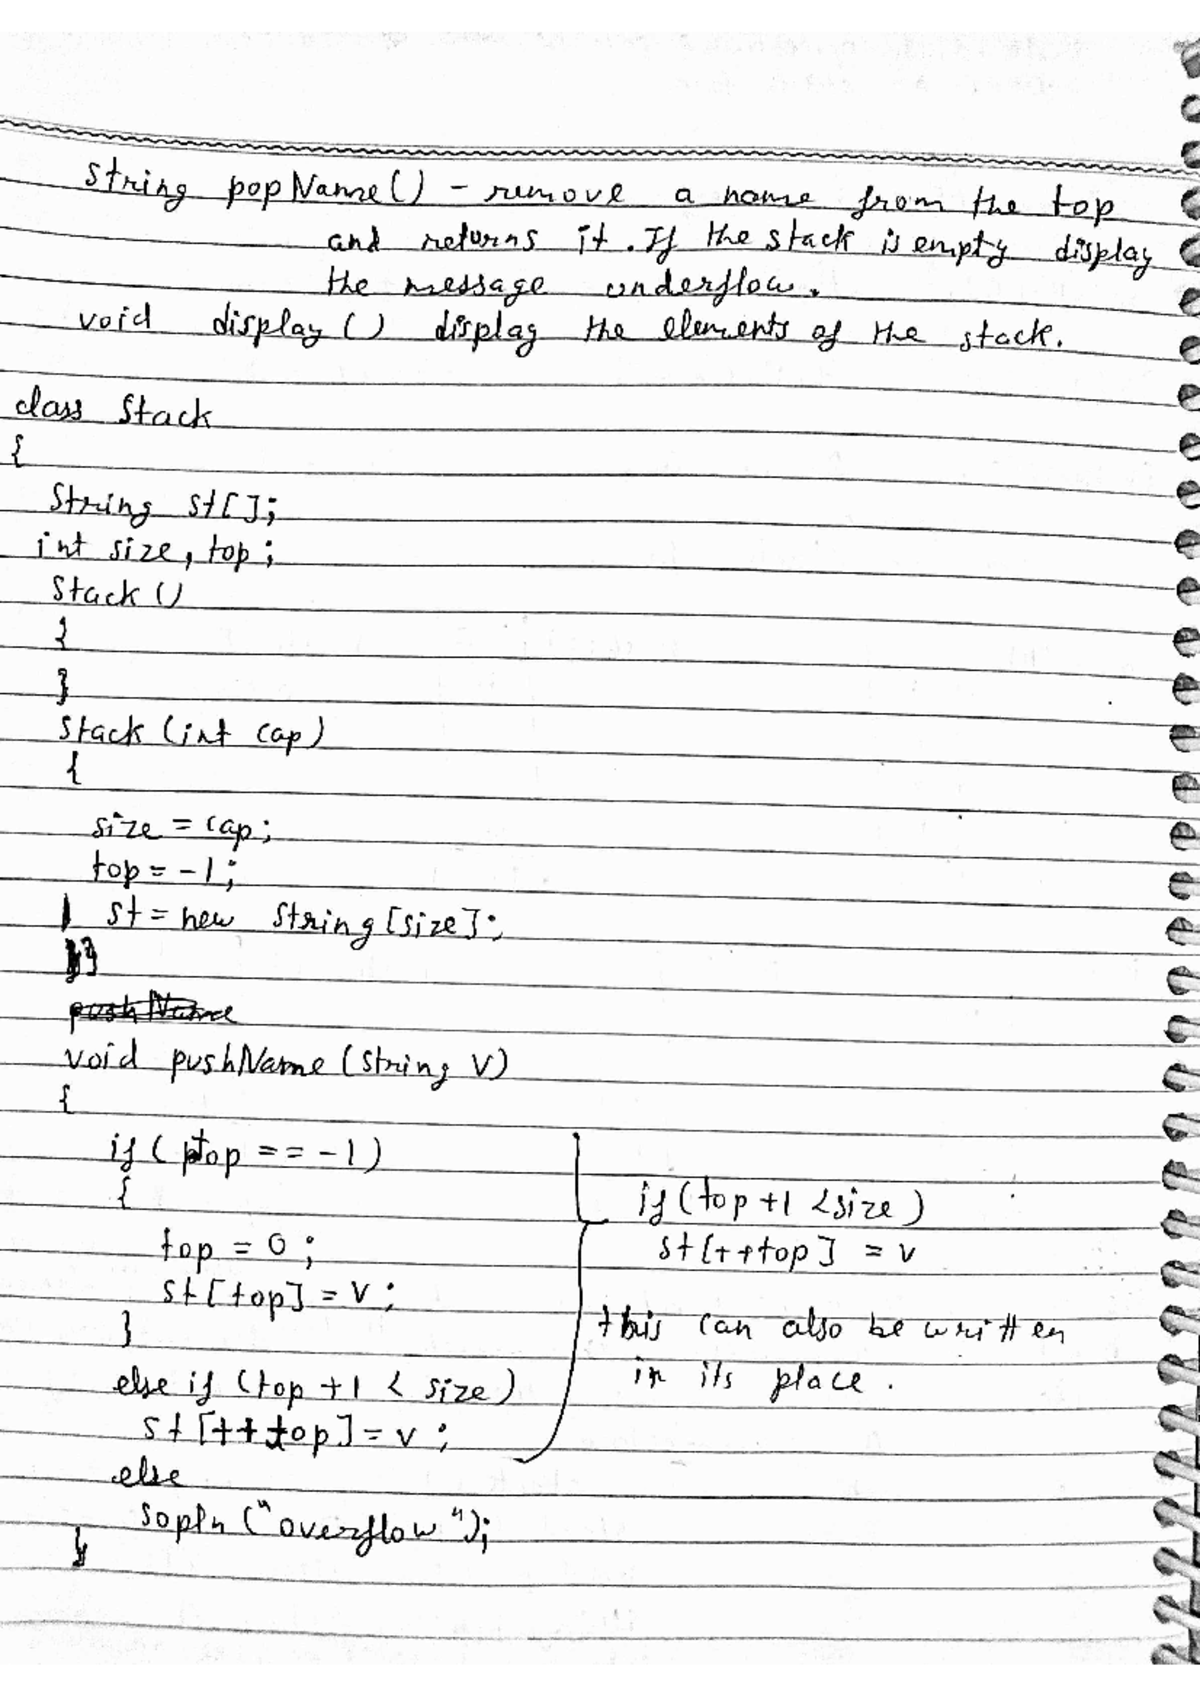 String popName() - remove a name from the top
and returns it. If the stack is empty display
the message underflow.
void display() display the elements of the stack.
class Stack
{
String st[];
int size, top;
Stack()
{
}
Stack (int cap)
{
size = cap;
top = -1;
st = new String [size];
}
pushName
void pushName (String v)
{
if (top == -1)
{
top = 0;
st [top] = v;
}
else if (top +1 < size)
st [++top] = v;
else
sopln ("overflow");
}
if (top +1 < size)
st [++top] = v
this can also be written
in its place.